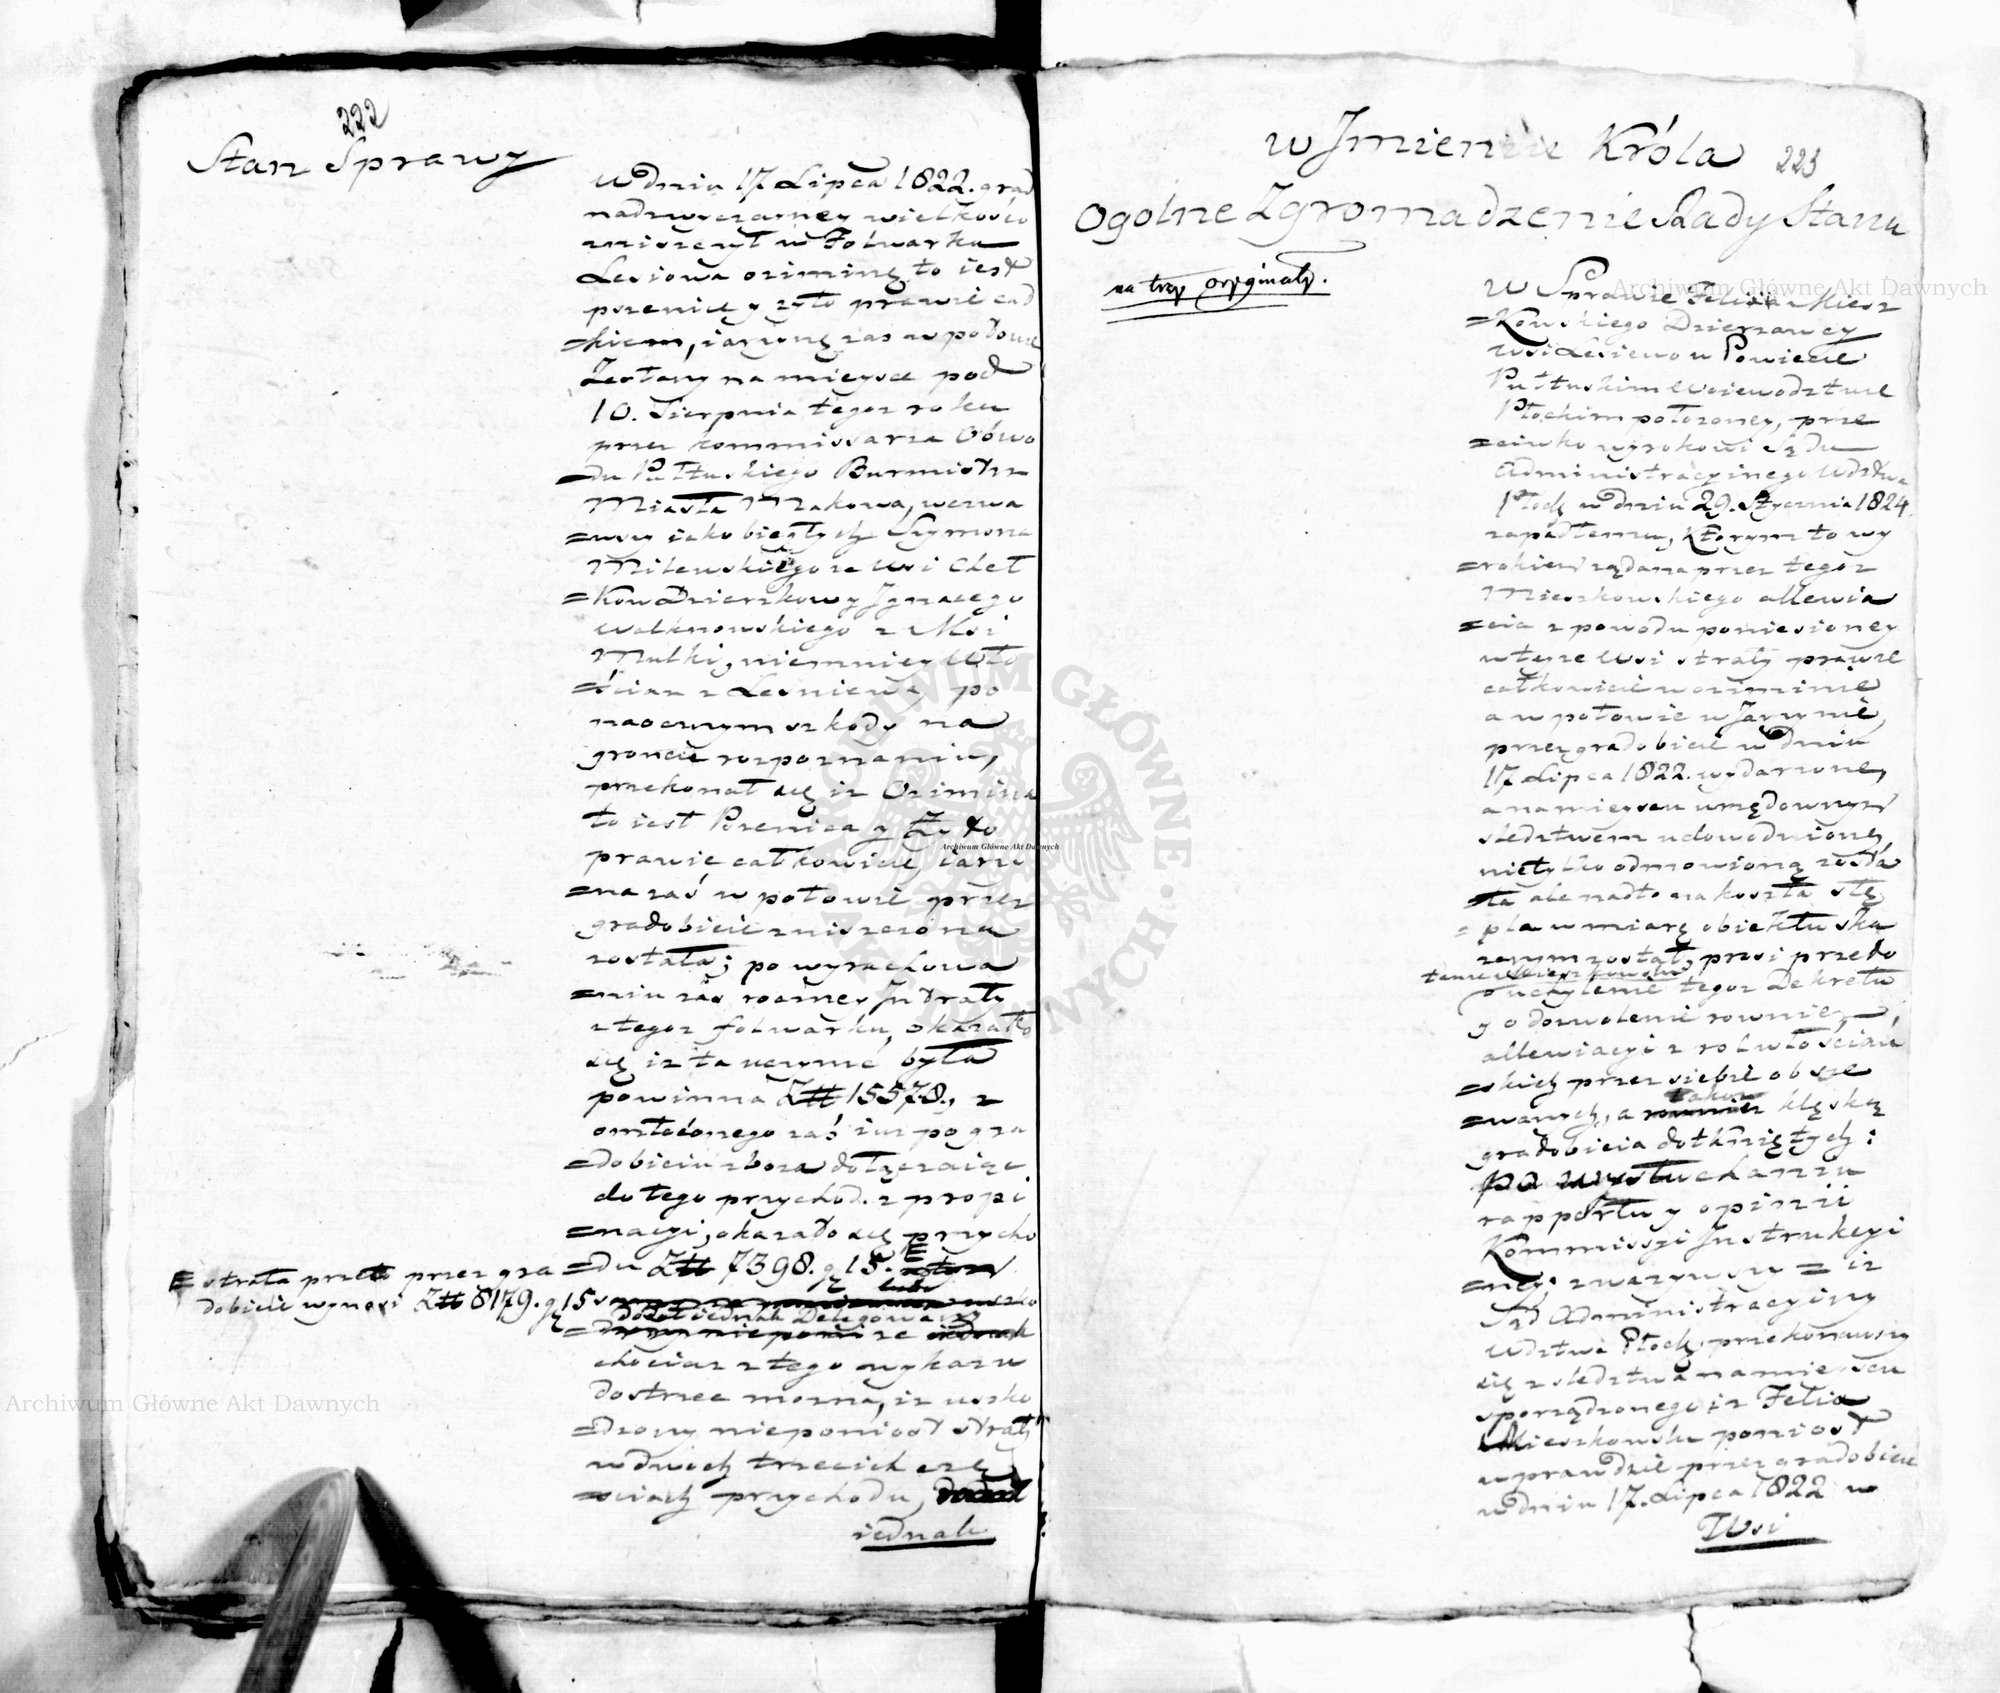 222
Stan Sprawy
W dniu 17 Lipca 1822. grad
nadzwyczayney wielkości
zniszczył w Folwarku
Lesiowa oziminę to iest
pszenicę y żyto prawie cał
=kiem, iarzynę zas w połowie
Zesłany na mieysce pod
10. Sierpnia tegoż roku
przez kommissarza Obwo
=du Pułtuskiego Burmistrz
Miasta Makowa, wezwa
=wszy iako biegłych Szymona
Milewskiego ze wsi Cheł
=kow Dzierzkowy Ignacego
z Wsi
Mulki, niemniey Wło
=ścian z Lesniewa, po
naocznym szkody na
gruncie rozpoznaniu,
przekonał się iż Ozimina
to iest Pszenica y Żyto
prawie całkowicie, iarzy
=na zaś w połowie przez
gradobicie zniszczona
została; po wyrachowa
=niu zaś roczney Intraty
z tegoż folwarku, okazało
się iż ta uczynić była
powinna Zł 15578., z
omłóconego zaś iuż po gra
=dobiciu zboża dołączaiąc
do tego przychod z propi
=nacyi, okazało się przycho
=du Zł 7398. g 15.
strata przeto przez gra
dobicie wynosi Zł 8179. g 15
lubo
Delegowany
chociaż z tego wykazu
dostrzec można, iż uszko
=dzony nieponiosł straty
w dwóch trzecich czę
=sciach przychodu,
iednak
w Imieniu Króla
223
Ogolne Zgromadzenie Rady Stanu
na trzy oryginały.
W Sprawie Felixa Miesz
=kowskiego Dzierzawcy
Wsi Lesiewo w Powiecie
Pułtuskim Woiewodztwie
Płockim położoney, prze
=ciwko wyrokowi Sądu
Administracyinego Wdztwa
Płock w dniu 29. Stycznia 1824
zapadłemu, którym to wy
=rokiem żądana przez tegoż
Mieszkowskiego allewia
=cia z powodu poniesioney
w teyże Wsi straty prawie
całkowicie w oziminie
a w połowie w Jarzynie,
przez gradobicie w dniu
17 Lipca 1822. wydarzone,
a na mieyscu urzędownym
sledztwem udowodnioną,
nietylko odmowioną zosta
=ła ale nadto na koszta stę
=pla w miarę obiektu ska
zanym został, prosi przeto
tenże Mieszkowski
o uchylenie tegoż Dekretu
y o dozwolenie rownie
allewiacyi z rol włościań
=skich przez siebie obsie
=wanych, a takoż klęską
gradobicia dotkniętych;
po wysłuchaniu
rapportu y opinii
Kommissyi Instrukcyi
=ney; zważywszy = iż
Sąd Administracyiny
Wdztwa Płock, przekonawszy
się z sledztwa na mieyscu
sporządzonego iż Felix
Mieszkowski poniosł
wprawdzie przez gradobicie
w dniu 17. Lipca 1822 w
Wsi
Archiwum Główne Akt Dawnych
Archiwum Główne Akt Dawnych
Archiwum Główne Akt Dawnych
ARCHIWUM GŁÓWNE AKT DAWNYCH